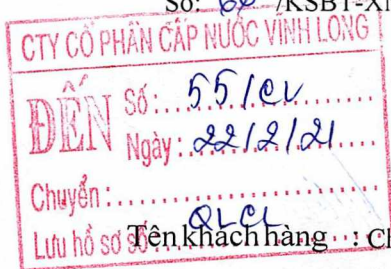 Số: 60 /KSBT-XN
CTY CỔ PHẦN CẤP NƯỚC VĨNH LONG
ĐẾN
Số: 55/CV
Ngày: 22/2/21
Chuyển:
Lưu hồ sơ số: QLCL
Tên khách hàng : C